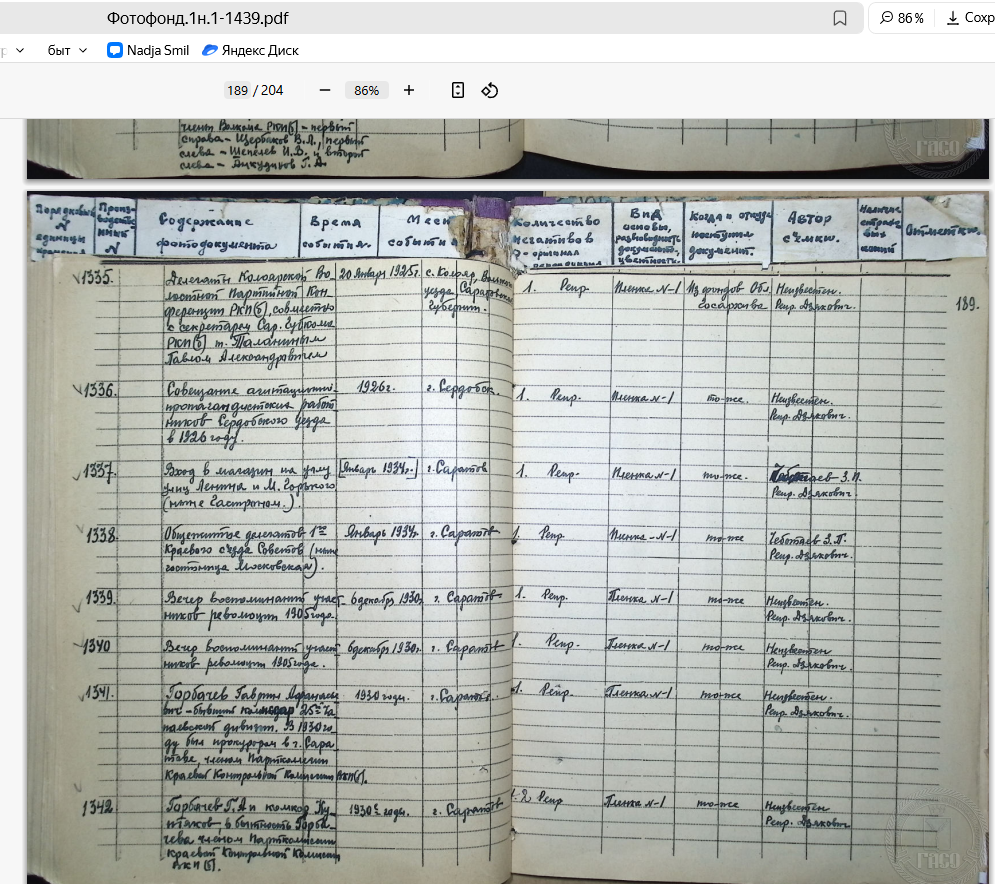 Фотофонд.1н.1-1439.pdf
86%
Сохр
быт
Nadja Smil
Яндекс Диск
189 / 204
86%
члены Волкома РКП(б) – первый
справа – Щербаков В.Л., первый
слева – Шепелев И.В. и второй
слева – Дикудинов Г.А.
ГАСО
Порядковый N единицы
Произ-водств-нный N
Содержание фотодокумента
Время события
Место события
Количество негативов
оригинал
Вид, разновидность документа, цветность.
Когда и откуда поступил документ.
Автор съёмки.
Наличие
Отметки.
189.
1335. Делегаты Колоярской Во- 20 января 1925г. с. Колояр, 1. Репр. Пленка н-1 Из фондов Обл. Неизвестен.
лостной партийной Кон- уезда Саратовской госархива Репр. Дзякович.
ференции РКП(б), совместно губернии.
с секретарем Сар. Губкома
РКП(б) т. Галаниным
Павлом Александровичем
1336. Совещание агитационно- 1926г. г. Сердобск. 1. Репр. Пленка н-1 то-же. Неизвестен.
пропагандистских работ- Репр. Дзякович.
ников Сердобского уезда
в 1926 году.
1337. Вход в магазин на углу [Январь 1934г.] г. Саратов 1. Репр. Пленка н-1 то-же. Чеботаев З.П.
улиц Ленина и М. Горького Репр. Дзякович.
(ныне Гастроном.).
1338. Общежитие делегатов 1го Январь 1934г. г. Саратов 1. Репр. Пленка-н-1 то-же Чеботаев З.П.
Краевого съезда Советов (ныне Репр. Дзякович.
гостиница Московская).
1339. Вечер воспоминаний участ- 6 декабря 1930г. г. Саратов 1. Репр. Пленка н-1 то-же Неизвестен.
ников революции 1905 года. Репр. Дзякович.
1340 Вечер воспоминаний участ- 6 декабря 1930г. г. Саратов 1. Репр. Пленка н-1 то-же Неизвестен
ников революции 1905 года. Репр. Дзякович.
1341. Горбачев Гаврил Афанасье- 1930 годы. г. Саратов. 1. Репр. Пленка н-1 то-же Неизвестен.
вич – бывший комиссар 25ой Ча- Репр. Дзякович.
паевской дивизии. В 1930 го-
ду был прокурором в г. Сара-
тове, членом Парткомиссии
Краевой Контрольной Комиссии ВКП(б).
1342 Горбачев Г.А и комкор Ку- 1930е годы. г. Саратов 1-2 Репр Пленка н-1 то-же Неизвестен
тяков, в бытность Горба- Репр. Дзякович.
чева членом Парткомиссии
Краевой Контрольной Комиссии
ВКП(б).
ГАСО